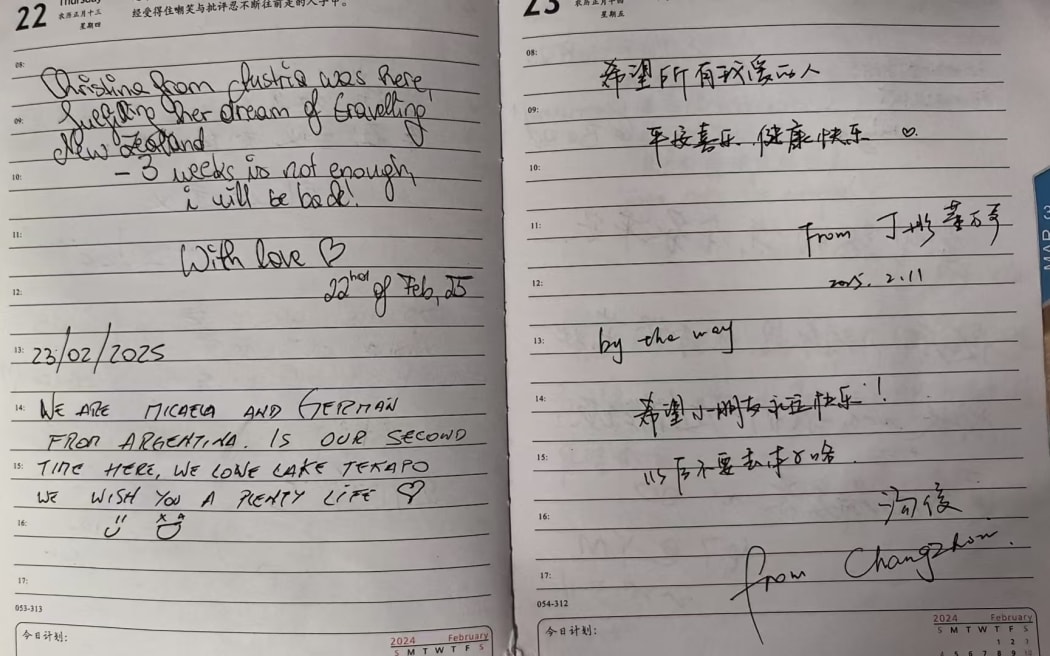 22
Thursday
农历正月十三
星期四
经受得住嘲笑与批评忍不断往前走的人手中。
08:
Christina from Austria was here,
fulfilling her dream of travelling
09:
New Zealand
10:
- 3 weeks is not enough,
i will be back!
11:
With love ♡
12:
22nd of Feb, 25
13:
23/02/2025
14:
WE ARE MICAELA AND GERMAN
FROM ARGENTINA. IS OUR SECOND
15:
TIME HERE, WE LOVE LAKE TEKAPO
WE WISH YOU A PLENTY LIFE ♡
16:
17:
053-313
今日计划:
2024 February
S M T W T F S
23
农历正月十四
星期五
08:
希望所有我爱的人
09:
平接喜乐 健康快乐 ♡
10:
11:
From 丁彬
12:
2025. 2.11
13:
by the way
14:
希望小朋友永远快乐!
15:
以后不要去
16:
from Changzhou.
17:
054-312
今日计划:
2024 February
S M T W T F S
1 2 3
4 5 6 7 8 9 10
MAR 3